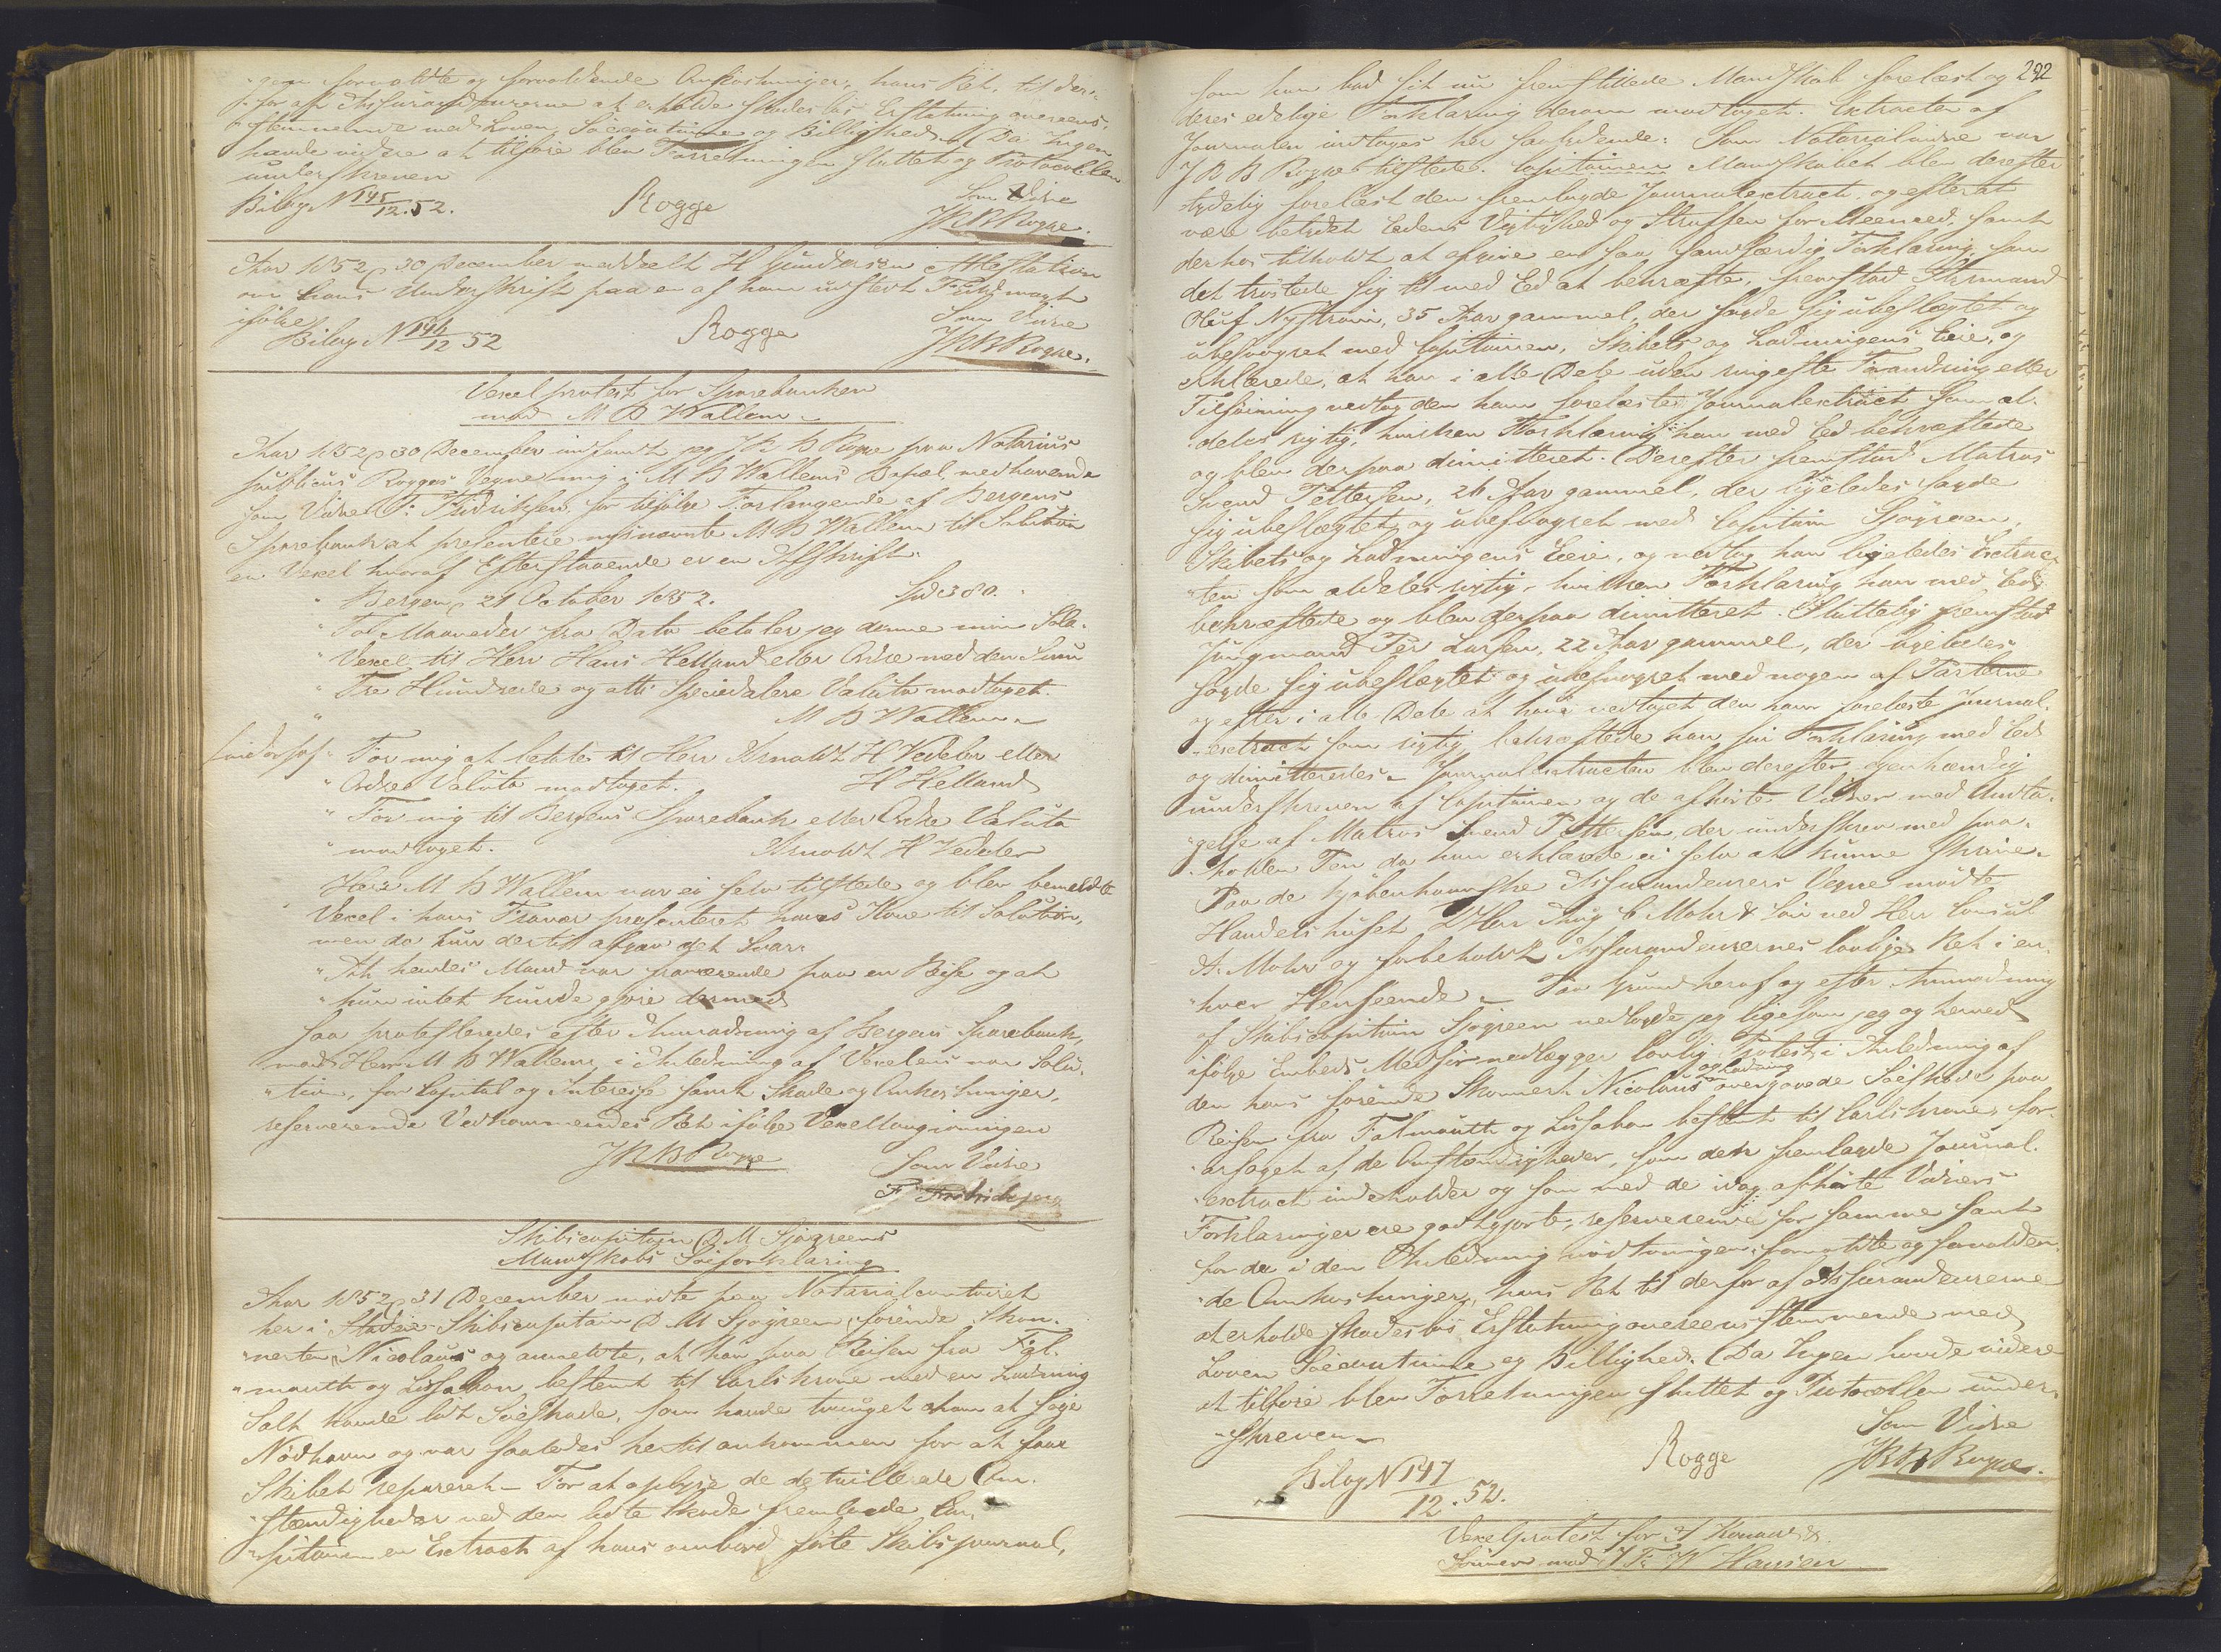 "gen forvoldte og forvoldende Omkostninger, hans Ret, til der-
"for af Assurandeurerne at erholde skadesløs Erstatning overeens-
"stemmende med Loven, Søecoutume og Billighed. Da Ingen
havde videre at tilføre blev Forretningen sluttet og Protocollen
underskreven
Bilag N 145/12.52. Rogge Som Vidne
J R B Rogge.
Aar 1852 p 30 December meddeelt H Gundersen Attestation
om hans Underskrift paa en af ham udstedt Fuldmagt
ifølge Som Vidne
Bilag N 146/12 52 Rogge J R B Rogge.
Vexelprotest for Sparebanken
mod M B Wallem
Aar 1852 p 30 December indfandt jeg J R B Rogge paa Notarius
publicus Rogges Vegne mig i M B Wallems Bopæl, medhavende
som Vidne F: Fridriksen, for tilfølge Forlangende af Bergens
Sparebank at presentere nysnævnte M B Wallem til Solution
en Vexel hvoraf Efterstaaende er en Afskrift.
" Bergen p 21 October 1852. Spd 380.
" To Maaneder fra Dato betaler jeg denne min Sola-
" Vexel til Herr Hans Helland eller Ordre med den Sum
" Tre Hundrede og otti Speciedalere Valuta modtaget.
" M B Wallem
" For mig at betale til Herr Arnoldt H Vedeler eller
" Ordre Valuta modtaget. H Helland
" For mig til Bergens Sparebank eller Ordre Valuta
" modtaget. Arnoldt H Vedeler
Herr M B Wallem var ei selv tilstede og blev bemeldte
Vexel i hans Fravær presenteret hans Kone til Solution,
men da hun dertil afgav det Svar:
"At hendes Mand var fraværende paa en Reise og at
"hun intet kunde gjøre dermed
saa protesteredes efter Anmodning af Bergens Sparebank,
mod Herr M B Wallem, i Anledning af Vexelens non Solu-
"tion, for Capital og Interesse samt Skade og Omkostninger,
reserverende Vedkommendes Ret ifølge Vexellovgivningen
J R B Rogge Som Vidne
F Fredrichsen
Skibscapitain D M Sjøgreens
Mandskabs Søeforklaring
Aar 1852 p 31 December mødte paa Notarialcontoiret
her i Staden Skibscapitain D M Sjøgreen, førende Skon-
"nerten Nicolaus og anmeldte, at han paa Reisen fra Fal-
"mouth og Lissabon bestemt til Carlskrone med en Ladning
Salt havde lidt Søeskade, som havde tvunget ham at søge
Nødhavn og var saaledes hertil ankommen for at faae
Skibet repareret. For at oplyse de detaillerede Om-
"stændigheder ved den lidte Skade fremlagde Ca-
"pitainen en Extract af hans ombord førte Skibsjournal,
292
som han bad sit nu fremstillede Mandskab forelæst og
deres edelige Forklaring derom modtaget. Extracten af
Journalen indtages her saalydende: Som Notarialvidne var
J R B Rogge tilstede. Capitainen Mandskabet blev derefter
tydelig forelæst den fremlagde Journalextract, og efter at
være betydet Edens Vigtighed og Straffen for Meeneed, samt
derhos tilholdt at afgive en saa sandfærdig Forklaring som
det trøstede sig til med Eed at bekræfte, fremstod Styrmand
Oluf Nystrøm, 35 Aar gammel, der sagde sig ubeslægtet og
ubesvogret med Capitainen, Skibets og Ladningens Eiere, og
erklærede, at han i alle Dele uden ringeste Forandring eller
Tilføining vedtog den ham forelæste Journalextract som al-
"deles rigtig, hvilken Forklaring han med Eed bekræftede
og blev derpaa dimitteret. Derefter fremstod Matros
Svend Pettersen, 26 Aar gammel, der ligeledes sagde
sig ubeslægtet og ubesvogret med Capitain Sjøgreen,
Skibets og Ladningens Eiere, og vedtog han ligeledes Extrac-
"ten som aldeles rigtig, hvilken Forklaring han med Eed
bekræftede og blev derpaa dimitteret. Sluttelig fremstod
Jungmand Per Larsen, 22 Aar gammel, der ligeledes
sagde sig ubeslægtet og ubesvogret med nogen af Parterne
og efter i alle Dele at have vedtaget den ham forelæste Journal-
"extract som rigtig bekræftede han sin Forklaring med Eed
og dimitteredes. Journalextracten blev derefter egenhændig
underskreven af Capitainen og de afhørte Vidner med Undta-
"gelse af Matros Svend Pettersen, der underskrev med paa-
"holden Pen da han erklærede ei selv at kunne skrive.
Paa de kjøbenhavnske Assurandeurers Vegne mødte
Handelshuset DHrr Aug C Mohr & Søn ved Herr Consul
A. Mohr og forbeholdt Assurandeurernes lovlige Ret i en-
"hver Henseende. Paa Grund heraf og efter Anmodning
af Skibscapitain Sjøgreen nedlagde jeg ligesom jeg og herved
ifølge Embeds Medfør nedlægger lovlig Protest, i Anledning af
den hans førende Skonnert Nicolaus og Ladning overgaaede Søeskade paa
Reisen fra Falmouth og Lissabon bestemt til Carlskrone, for-
"aarsaget af de Omstændigheder, som den fremlagde Journal-
"extract indeholder og som med de idag afhørte Vidners
Forklaringer ere godtgjorte, reserverende for samme samt
for de i den Anledning nødtvungen, forvoldte og forvolden-
"de Omkostninger, hans Ret til derfor af Assurandeurerne
at erholde skadesløs Erstatning overeensstemmende med
Loven Søecoutume og Billighed. Da Ingen havde videre
at tilføre blev Forretningen sluttet og Protocollen under-
"skreven Som Vidne
Bilag N 147/12.52. Rogge J R B Rogge.
Vexelprotest for
Sønner mod J Fr W Hansen